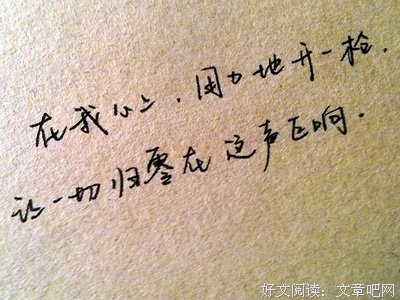 在我心上，用力地开一枪．
让一切归零在这声巨响．
好文阅读：文章吧网